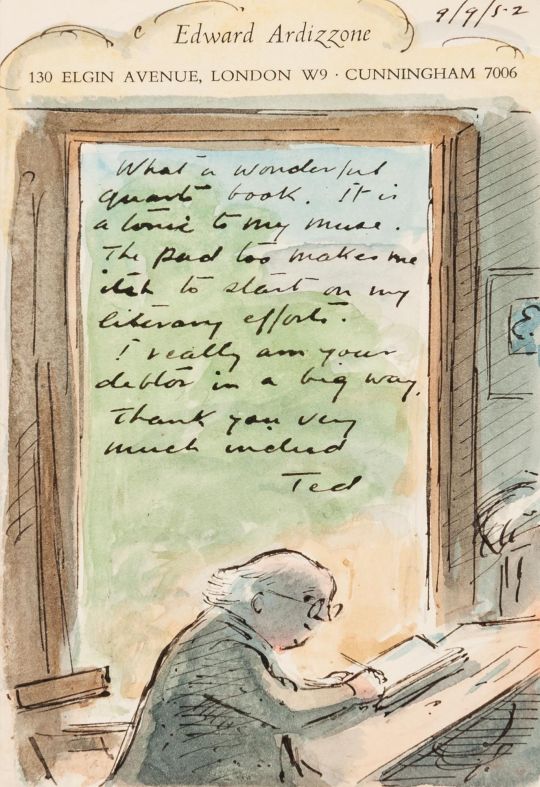 Edward Ardizzone
9/9/52
130 ELGIN AVENUE, LONDON W9 · CUNNINGHAM 7006
What a wonderful
quarto book. It is
a tonic to my muse.
The pad too makes me
itch to start on my
literary efforts.
I really am your
debtor in a big way.
Thank you very
much indeed
Ted